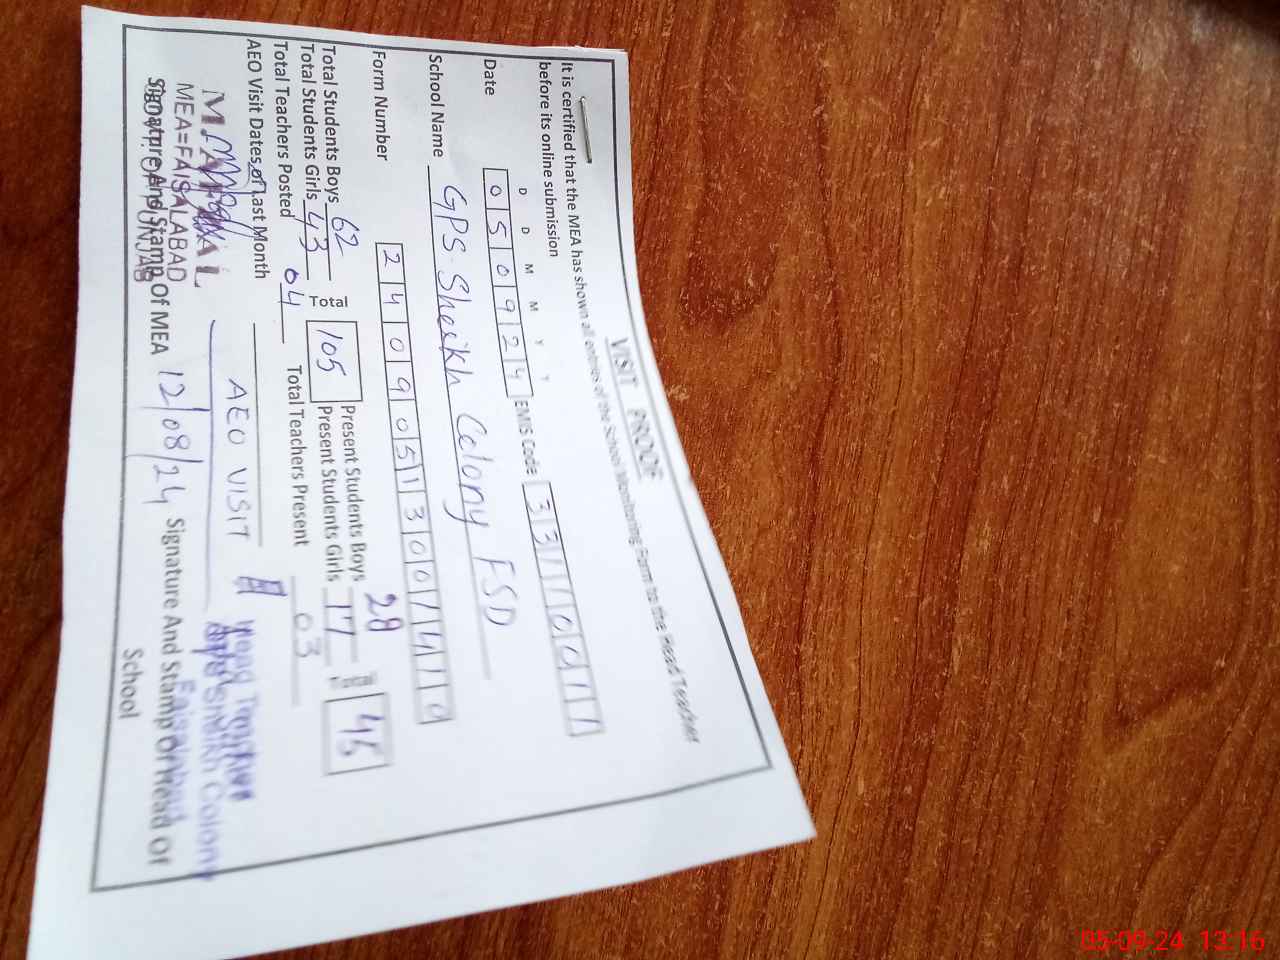 VISIT PROOF
It is certified that the MEA has shown all entries of the school Monitoring Form to the Head Teacher
before its online submission
D D M M Y Y
Date 0 5 0 9 2 4 EMIS Code 3 3 1 1 0 0 1 1
School Name GPS Sheikh Colony FSD
Form Number 2 4 0 9 0 5 1 3 0 0 1 4 1 0
Total Students Boys 62 Present Students Boys 28
Total Students Girls 43 Total 105 Present Students Girls 17 Total 45
Total Teachers Posted 04 Total Teachers Present 03
AEO Visit Dates of Last Month
AEO VISIT
12/08/24
MEA=FAISALABAD
Head Teacher
Sheikh Colony
Faisalabad
Signature And Stamp Of MEA
Signature And Stamp Of Head Of
School
05-09-24 13:16